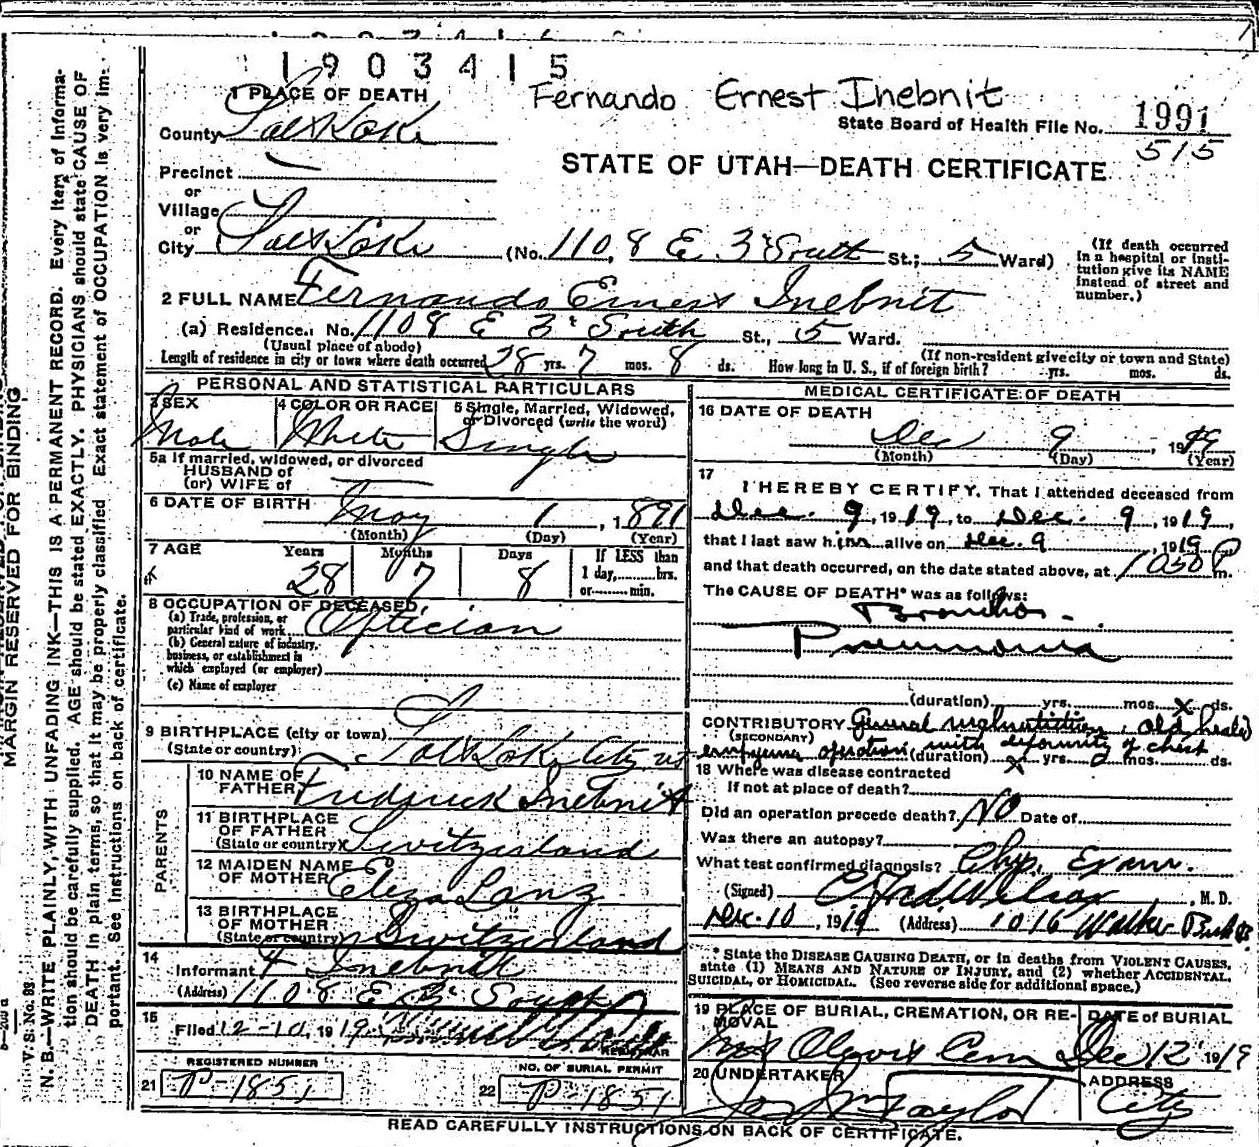 1903415
Fernando Ernest Inebnit
1 PLACE OF DEATH
State Board of Health File No. 1991
515
County Salt Lake
STATE OF UTAH—DEATH CERTIFICATE
Precinct —
or
Village
or
City Salt Lake (No. 1108 E 3d South St.; 5 Ward)
(If death occurred in a hospital or institution give its NAME instead of street and number.)
2 FULL NAME Fernando Ernest Inebnit
(a) Residence. No. 1108 E 3d South St., 5 Ward.
(Usual place of abode) (If non-resident give city or town and State)
Length of residence in city or town where death occurred 28 yrs. 7 mos. 8 ds. How long in U. S., if of foreign birth? yrs. mos. ds.
PERSONAL AND STATISTICAL PARTICULARS
3 SEX Male
4 COLOR OR RACE White
5 Single, Married, Widowed, or Divorced (write the word) Single
5a If married, widowed, or divorced
HUSBAND of
(or) WIFE of
6 DATE OF BIRTH May 1, 1891
(Month) (Day) (Year)
7 AGE Years Months Days If LESS than
28 7 8 1 day, hrs.
or min.
8 OCCUPATION OF DECEASED
(a) Trade, profession, or particular kind of work Optician
(b) General nature of industry, business, or establishment in which employed (or employer)
(c) Name of employer
9 BIRTHPLACE (city or town)
(State or country) Salt Lake City Ut
PARENTS
10 NAME OF FATHER Frederick Inebnit
11 BIRTHPLACE OF FATHER
(State or country) Switzerland
12 MAIDEN NAME OF MOTHER Eliza Lanz
13 BIRTHPLACE OF MOTHER
(State or country) Switzerland
14
Informant F Inebnit
(Address) 1108 E 3d South
15
Filed 12-10, 1919
REGISTRAR
REGISTERED NUMBER
21 P-1851
NO. OF BURIAL PERMIT
22 P-1851
MEDICAL CERTIFICATE OF DEATH
16 DATE OF DEATH
Dec 9, 1919
(Month) (Day) (Year)
17
I HEREBY CERTIFY, That I attended deceased from
Dec. 9, 1919, to Dec. 9, 1919,
that I last saw him alive on Dec. 9, 1919
and that death occurred, on the date stated above, at 1050 P m.
The CAUSE OF DEATH* was as follows:
Broncho-
Pneumonia
(duration) yrs. mos. x ds.
CONTRIBUTORY General malnutrition, old healed
(SECONDARY)
empyema operation with deformity of chest
(duration) x yrs. mos. ds.
18 Where was disease contracted
If not at place of death?
Did an operation precede death? No Date of
Was there an autopsy?
What test confirmed diagnosis? Phys. Exam.
(Signed) , M. D.
Dec. 10, 1919 (Address) 1016 Walker Bank
* State the DISEASE CAUSING DEATH, or in deaths from VIOLENT CAUSES,
state (1) MEANS AND NATURE OF INJURY, and (2) whether ACCIDENTAL,
SUICIDAL, or HOMICIDAL. (See reverse side for additional space.)
19 PLACE OF BURIAL, CREMATION, OR REMOVAL
Mt Olivet Cem
DATE of BURIAL
Dec 12 1919
20 UNDERTAKER
Jos Wm Taylor
ADDRESS
City
READ CAREFULLY INSTRUCTIONS ON BACK OF CERTIFICATE.
MARGIN RESERVED FOR BINDING
V. S. No. 83
N. B.—WRITE PLAINLY, WITH UNFADING INK—THIS IS A PERMANENT RECORD. Every item of information should be carefully supplied. AGE should be stated EXACTLY. PHYSICIANS should state CAUSE OF DEATH in plain terms, so that it may be properly classified. Exact statement of OCCUPATION is very important. See instructions on back of certificate.